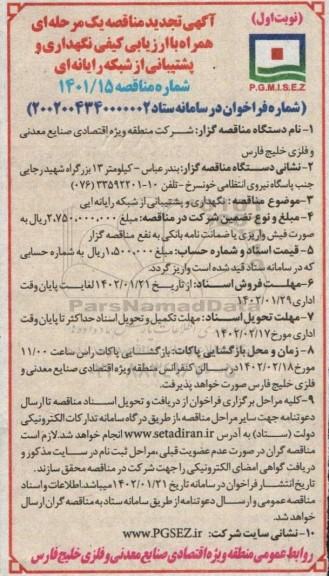 (نوبت اول)
آگهی تجدید مناقصه یک مرحله ای
همراه با ارزیابی کیفی نگهداری و
پشتیبانی از شبکه رایانه ای
شماره مناقصه ۱۴۰۱/۱۵
P.G.M.I.S.E.Z
(شماره فراخوان در سامانه ستاد ۲۰۰۲۰۰۴۳۴۰۰۰۰۰۰۲)
۱- نام دستگاه مناقصه گزار: شرکت منطقه ویژه اقتصادی صنایع معدنی
و فلزی خلیج فارس
۲- نشانی دستگاه مناقصه گزار: بندرعباس - کیلومتر ۱۳ بزرگراه شهید رجایی
جنب پاسگاه نیروی انتظامی خونسرخ - تلفن ۱۰-۳۳۵۹۲۲۰۱ (۰۷۶)
۳- موضوع مناقصه: نگهداری و پشتیبانی از شبکه رایانه ایی
۴- مبلغ و نوع تضمین شرکت در مناقصه: مبلغ ۲،۷۵۰،۰۰۰،۰۰۰ ریال به
صورت فیش واریزی یا ضمانت نامه بانکی به نفع مناقصه گزار
۵- قیمت اسناد و شماره حساب: مبلغ ۱،۵۰۰،۰۰۰ ریال به شماره حسابی
که در سامانه ستاد قید شده است واریز گردد.
۶- مهلت فروش اسناد: از تاریخ ۱۴۰۲/۰۱/۲۱ لغایت پایان وقت
اداری ۱۴۰۲/۰۱/۲۹
۷- مهلت تحویل اسناد: مهلت تکمیل و تحویل اسناد حداکثر تا پایان وقت
اداری مورخ ۱۴۰۲/۰۲/۱۷
۸- زمان و محل بازگشایی پاکات: بازگشایی پاکات راس ساعت ۱۱/۰۰
مورخ ۱۴۰۲/۰۲/۱۸ در سالن کنفرانس منطقه ویژه اقتصادی صنایع معدنی و
فلزی خلیج فارس صورت خواهد پذیرفت.
۹- کلیه مراحل برگزاری فراخوان از دریافت و تحویل اسناد مناقصه تا ارسال
دعوتنامه جهت سایر مراحل مناقصه، از طریق درگاه سامانه تدارکات الکترونیکی
دولت (ستاد) به آدرس www.setadiran.ir انجام خواهد شد. لازم است
مناقصه گران در صورت عدم عضویت قبلی، مراحل ثبت نام در سایت مذکور و
دریافت گواهی امضای الکترونیکی را جهت شرکت در مناقصه محقق سازند.
تاریخ انتشار فراخوان در سامانه تاریخ ۱۴۰۲/۰۱/۲۱ میباشد. اطلاعات و اسناد
مناقصه عمومی و ارسال دعوتنامه از طریق سامانه ستاد به مناقصه گران ارسال
خواهد شد.
۱۰- نشانی سایت شرکت: www.PGSEZ.ir
روابط عمومی منطقه ویژه اقتصادی صنایع معدنی و فلزی خلیج فارس
ParsNamadData